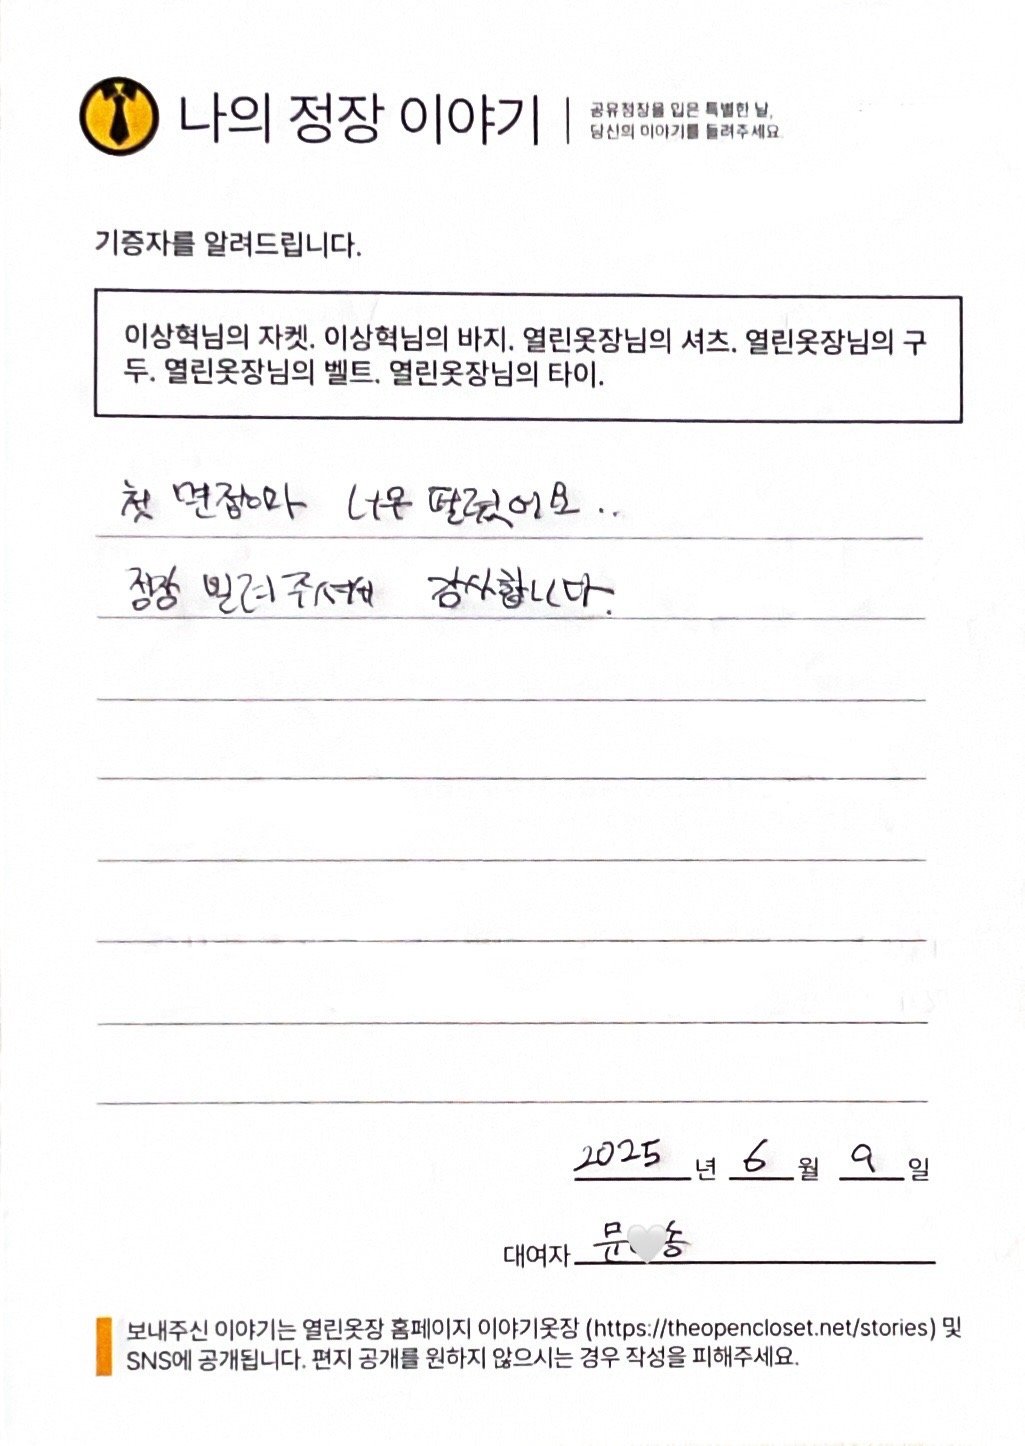 나의 정장 이야기
공유정장을 입은 특별한 날,
당신의 이야기를 들려주세요.
기증자를 알려드립니다.
이상혁님의 자켓. 이상혁님의 바지. 열린옷장님의 셔츠. 열린옷장님의 구
두. 열린옷장님의 벨트. 열린옷장님의 타이.
첫 면접이라 너무 떨렸어요..
정장 빌려주셔서 감사합니다.
2025 년 6 월 9 일
대여자 문 송
보내주신 이야기는 열린옷장 홈페이지 이야기옷장 (https://theopencloset.net/stories) 및
SNS에 공개됩니다. 편지 공개를 원하지 않으시는 경우 작성을 피해주세요.